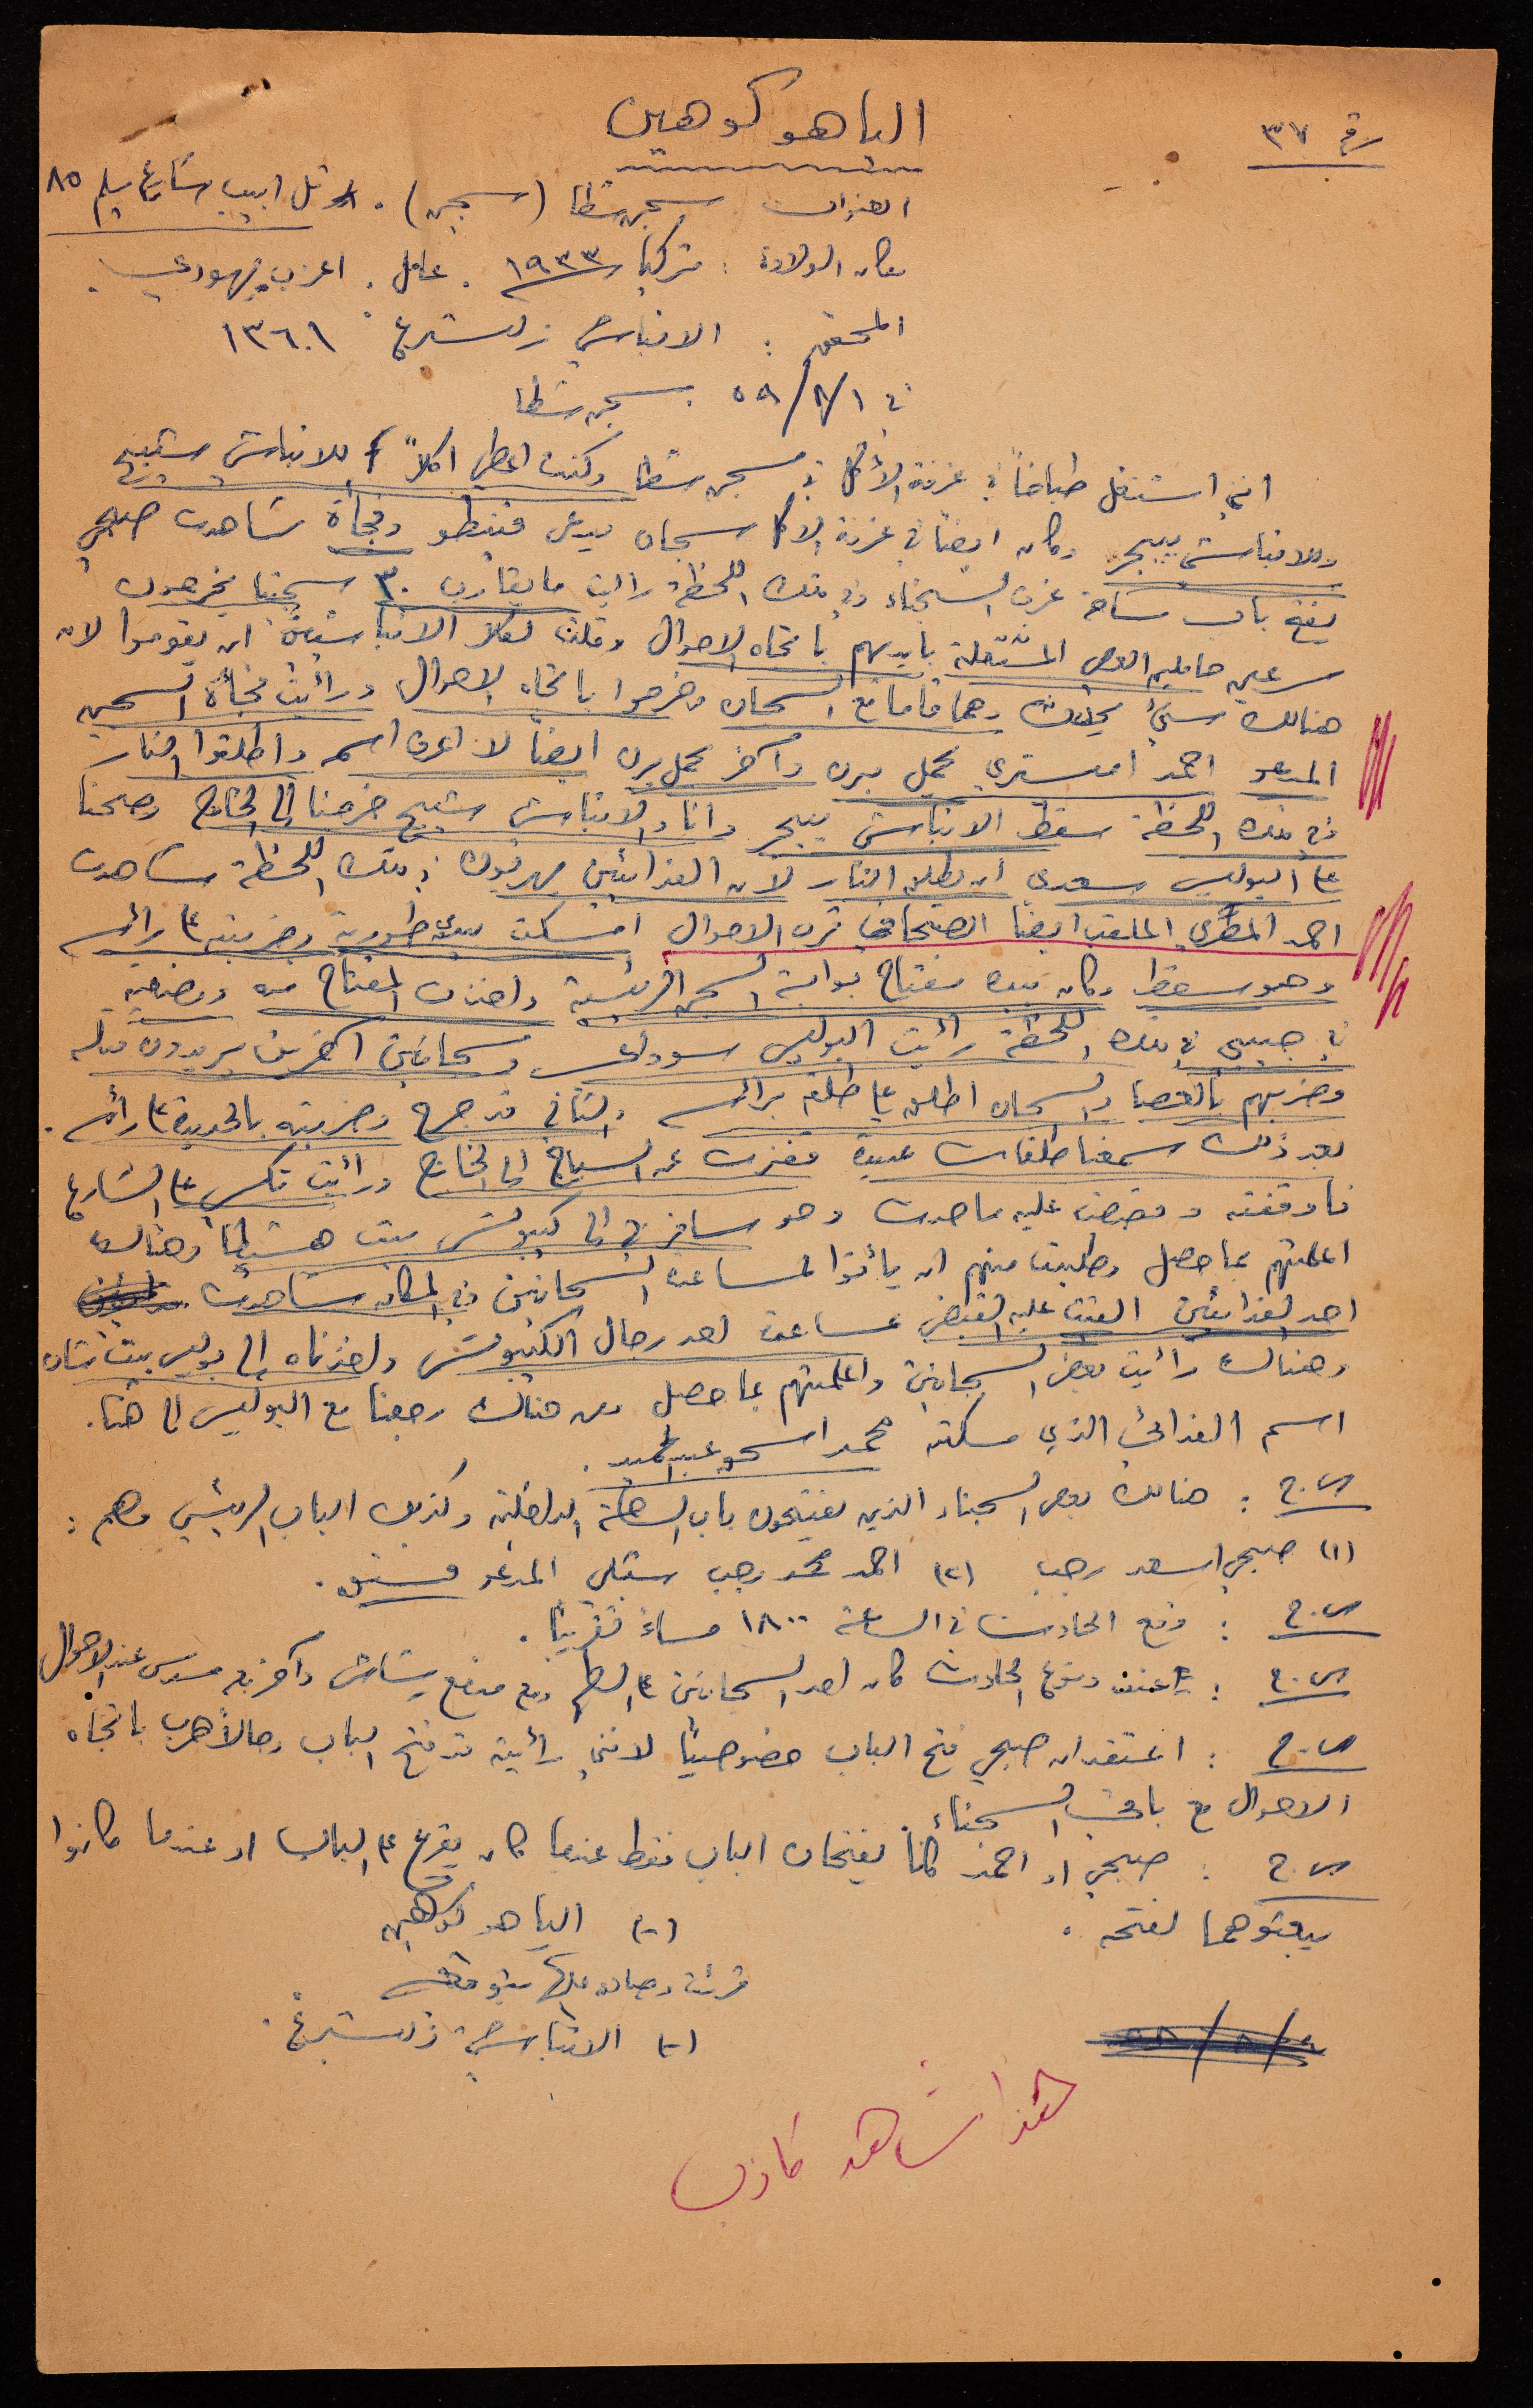 رقم ٣٧
الياهو كوهين
العنوان سجن شطا (سجين). تل ابيب شارع سلم ٨٥
مكان الولادة : تركيا ١٩٣٣ . عامل . اعزب يهودي .
المحقق : الانباشي زلتسبرغ ١٣٦٠١
في ٥٨/٨/١ . سجن شطا
اني اشتغل طباخاً في غرفة الأكل في سجن شطا وكنت اعطي اكلاً للانباشي شبيح
وللانباشي بيجر وكان ايضاً في غرفة الاكل سجان يدعى فينطو وفجأة شاهدت صبحي
يفتح باب ساحة غرف السجناء وفي تلك اللحظة رأيت ما يقارب ٣٠ سجينا يخرجون
سرعين حاملين العصي المشتعلة بايديهم باتجاه الاحوال وقلت لكلا الانباشية ان يقوموا لان
هنالك شيء يحدث وهما قاما مع السجان وخرجوا باتجاه الاحوال ورأيت فجأة السجين
المدعو احمد يحمل برن وآخر يحمل برن ايضا لا اعرف اسمه واطلقوا النار
في تلك اللحظة سقط الانباشي بيجر وانا والانباشي شبيح خرجنا الى الخارج وصحنا
على البوليس سعدي ان يطلق النار لان الفدائيين يهربون . في تلك اللحظة شاهدت
احمد المصري الملقب ايضا الصحافي قرب الاحوال امسكت بيدي طورية وضربته على رأسه
وهو سقط وكان بيده مفتاح بوابة السجن الرئيسية واخذت المفتاح منه ووضعته
في جيبي في تلك اللحظة رأيت البوليس وسجانين آخرين يريدون قتله
وضربهم بالعصا والسجان اطلق على طلقة برأسه والثاني قد جرح وضربته بالحديدة على رأسه .
بعد ذلك سمعنا طلقات عديدة قفزت عن السياج الى الخارج ورأيت تكسي على الشارع
فاوقفته وقصصت عليه ما حدث وهو سافر بي الى كيبوتس بيت هشيطا وهناك
اعلمتهم بما حصل وطلبت منهم ان يأتوا لمساعدة السجانين وفي المكان شاهدت
احد الفدائيين القيت عليه القبض بمساعدة احد رجال الكيبوتس واخذناه الى بوليس بيت شان
وهناك رأيت بعض السجانين واعلمتهم بما حصل ومن هناك رجعنا مع البوليس الى هنا.
اسم الفدائي الذي مسكته محمد اسحق عبد الحميد .
س.ج : هنالك بعض السجناء الذين يفتحون باب الساحة الداخلية وكذلك الباب الرئيسي وهم :
(١) صبحي اسعد رجب (٢) احمد محمد رجب شبلي المدعو فستق .
س.ج : وقع الحادث في الساعة ١٨٠٠ مساءً تقريباً .
س.ج : عند وقوع الحادث كان احد السجانين على السطح ومع مدفع رشاش وآخر مع مسدس عند الاحوال
س.ج : اعتقد ان صبحي فتح الباب خصوصياً لانني رأيته قد فتح الباب وحالاً هرب باتجاه
الاحوال مع باقي السجناء .
س.ج : صبحي او احمد كانا يفتحان الباب فقط عندما كان يقرع على الباب او عندما كانوا
يبعثوهما لفتحه .
(-) الياهو كوهين
قرئت وصادق عليها بتوقيعه
(-) الانباشي زلتسبرغ .
هذا شاهد كاذب